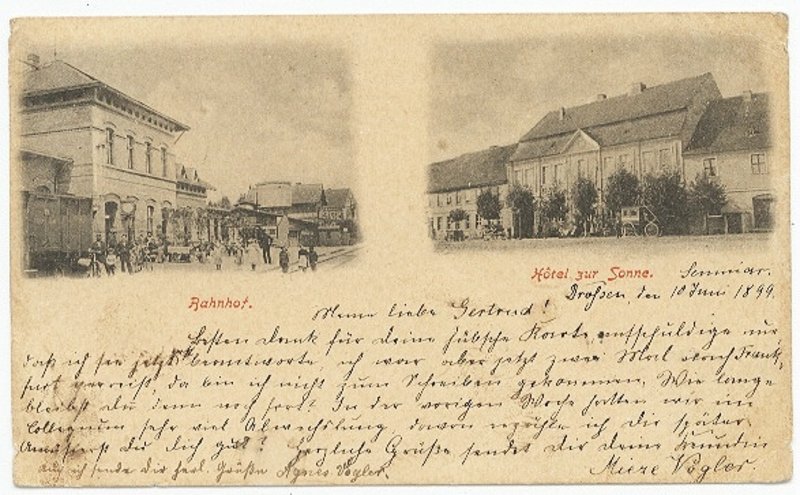 Bahnhof.
Hôtel zur Sonne.
Seminar.
Drossen, den 10 Juni 1899.
Meine liebe Gertrud!
Besten Dank für deine hübsche Karte, entschuldige nur
daß ich sie jetzt beantworte ich war aber jetzt zwei Mal nach Frank-
furt verreist, da bin ich nicht zum Schreiben gekommen. Wie lange
bleibst du denn noch fort? In der vorigen Woche hatten wir im
sehr viel Abwechslung, davon erzähle ich dir später
Amüsierst du dich gut? Herzliche Grüße sendet dir deine Freundin
Mieze Vogler.
Auch ich sende dir herl. Grüße Agnes Vogler.